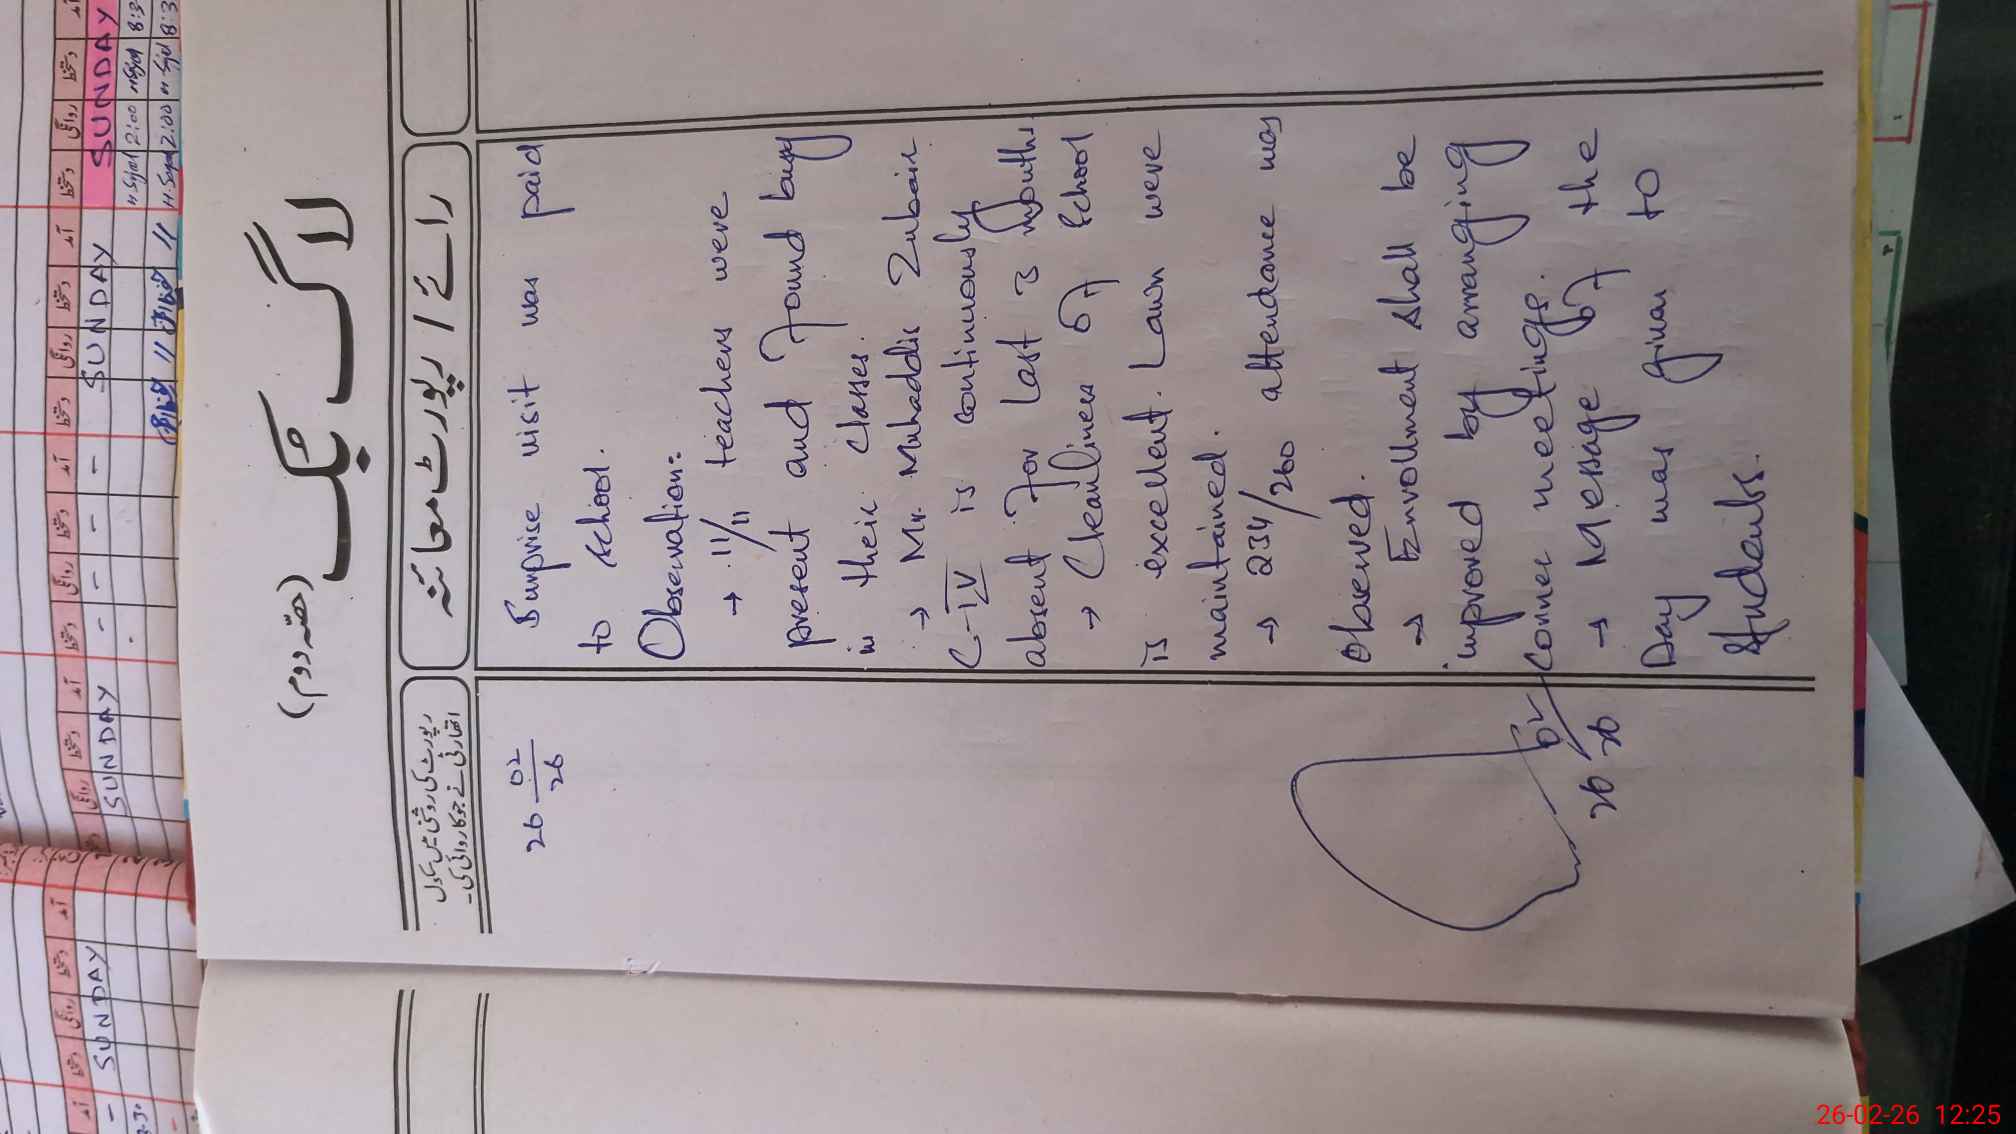 لاگ بُک
(حصّہ دوم)
رائے / رپورٹ معائنہ
رپورٹ کی روشنی میں سکول
اتھارٹی نے جو کاروائی کی۔
26 02/26
Surprise visit was paid
to school.
Observation:-
→ 11/11 teachers were
present and found busy
in their classes.
→ Mr. Muhaddis Zubair
C-IV is continuously
absent for last 3 months.
→ Cleanliness of school
is excellent. Lawn were
maintained.
→ 234/260 attendance was
observed.
→ Enrollment shall be
improved by arranging
Corner meetings.
→ Message of the
Day was given to
Students.
26 02/26
SUNDAY
SUNDAY
SUNDAY
SUNDAY
آمد دستخط روانگی دستخط
2:00
2:00
26-02-26 12:25